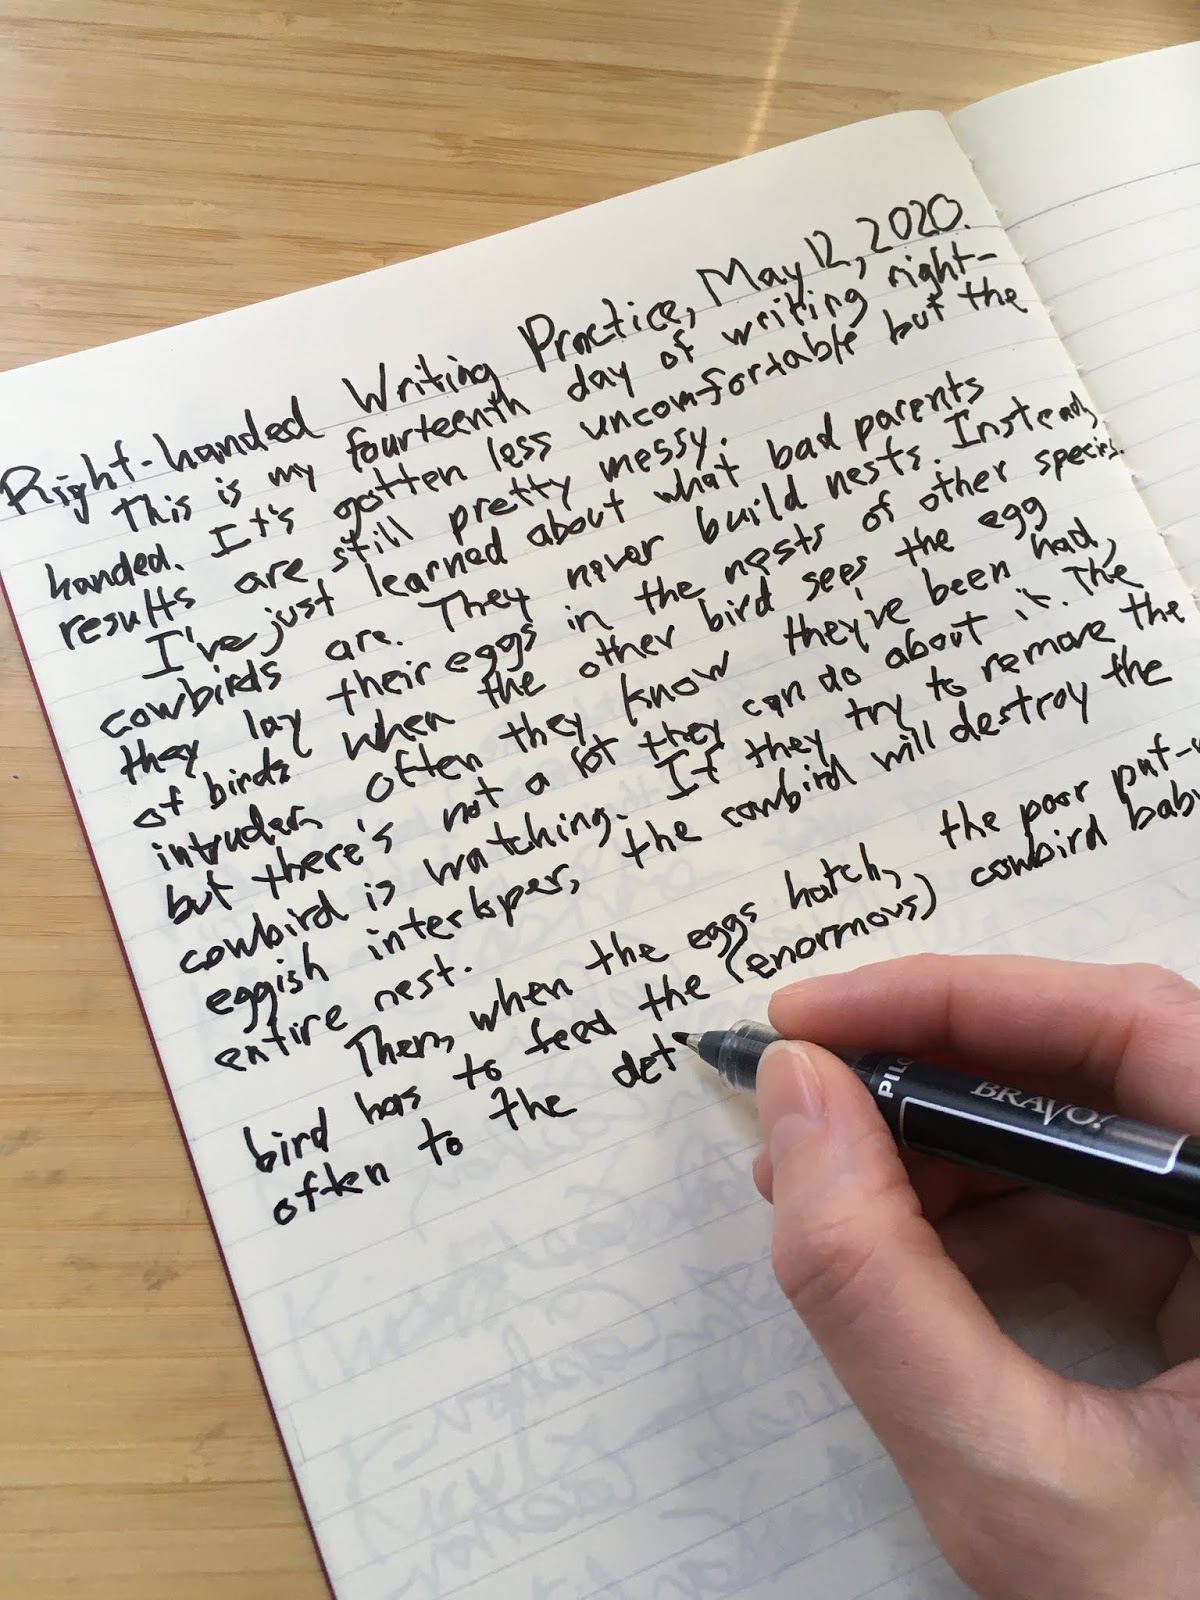 Right-handed Writing Practice, May 12, 2020.
This is my fourteenth day of writing right-
handed. It's gotten less uncomfortable but the
results are still pretty messy.
I've just learned about what bad parents
cowbirds are. They never build nests. Instead,
they lay their eggs in the nests of other species
of birds. When the other bird sees the egg
intruder, often they know they've been had,
but there's not a lot they can do about it. The
cowbird is watching. If they try to remove the
eggish interloper, the cowbird will destroy the
entire nest.
Then, when the eggs hatch, the poor put-
bird has to feed the (enormous) cowbird baby
often to the det
PILO
BRAVO!